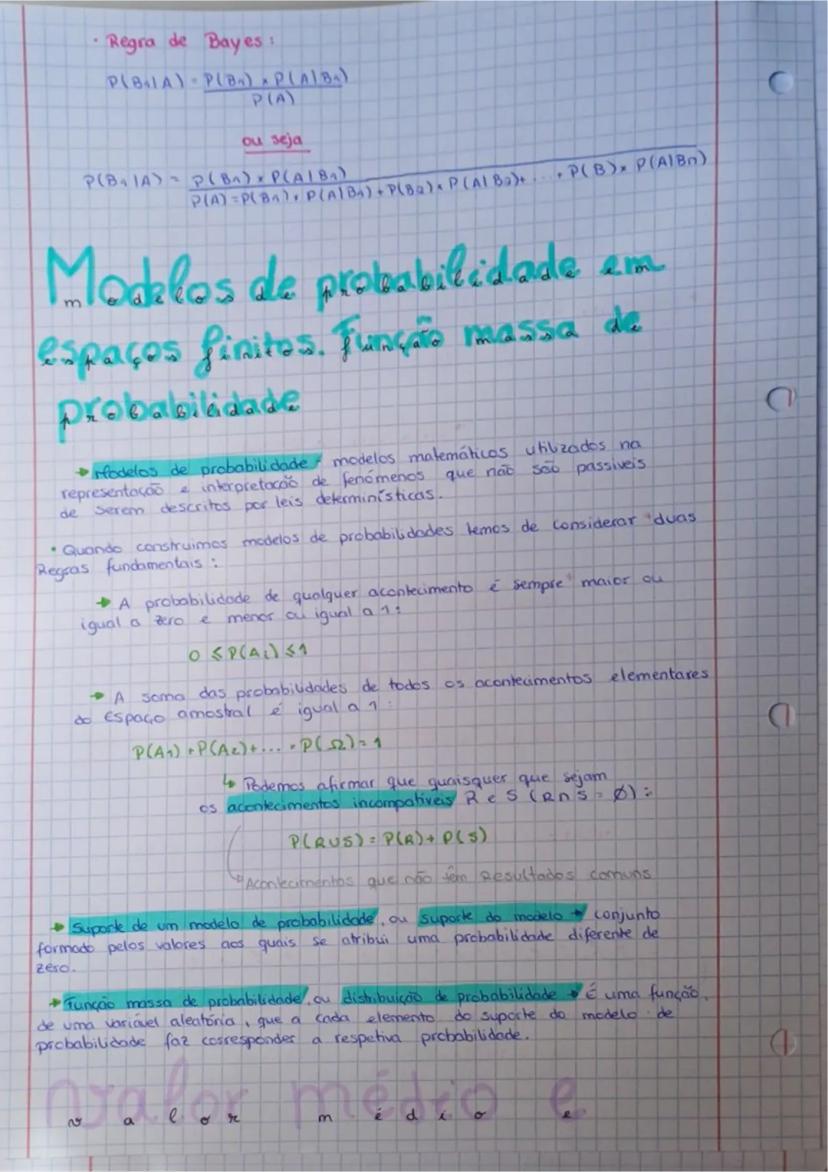 · Regra de Bayes:
P(B1|A) = P(B1) × P(A|B1)
P(A)
ou seja
P(B1|A) = P(B1) × P(A|B1)
P(A) = P(B1) × P(A|B1) + P(B2) × P(A|B2) + ... + P(B) × P(A|Bn)
Modelos de probabilidade em
espaços finitos. Função massa de
probabilidade
→ Modelos de probabilidade: modelos matemáticos utilizados na
representação e interpretação de fenómenos que não são passíveis
de serem descritos por leis determinísticas.
· Quando construimos modelos de probabilidades temos de considerar duas
Regras fundamentais:
→ A probabilidade de qualquer acontecimento é sempre maior ou
igual a zero e menor ou igual a 1:
0 ≤ P(Ai) ≤ 1
→ A soma das probabilidades de todos os acontecimentos elementares
do espaço amostral é igual a 1:
P(A1) + P(A2) + ... = P(Ω) = 1
↳ Podemos afirmar que quaisquer que sejam
os acontecimentos incompatíveis R e S (R∩S = Ø):
P(R∪S) = P(R) + P(S)
↳ Acontecimentos que não têm Resultados comuns
→ Suporte de um modelo de probabilidade, ou suporte do modelo → conjunto
formado pelos valores aos quais se atribui uma probabilidade diferente de
zero.
→ Função massa de probabilidade, ou distribuição de probabilidade → É uma função,
de uma variável aleatória, que a cada elemento do suporte do modelo de
probabilidade faz corresponder a respetiva probabilidade.
Valor médio e